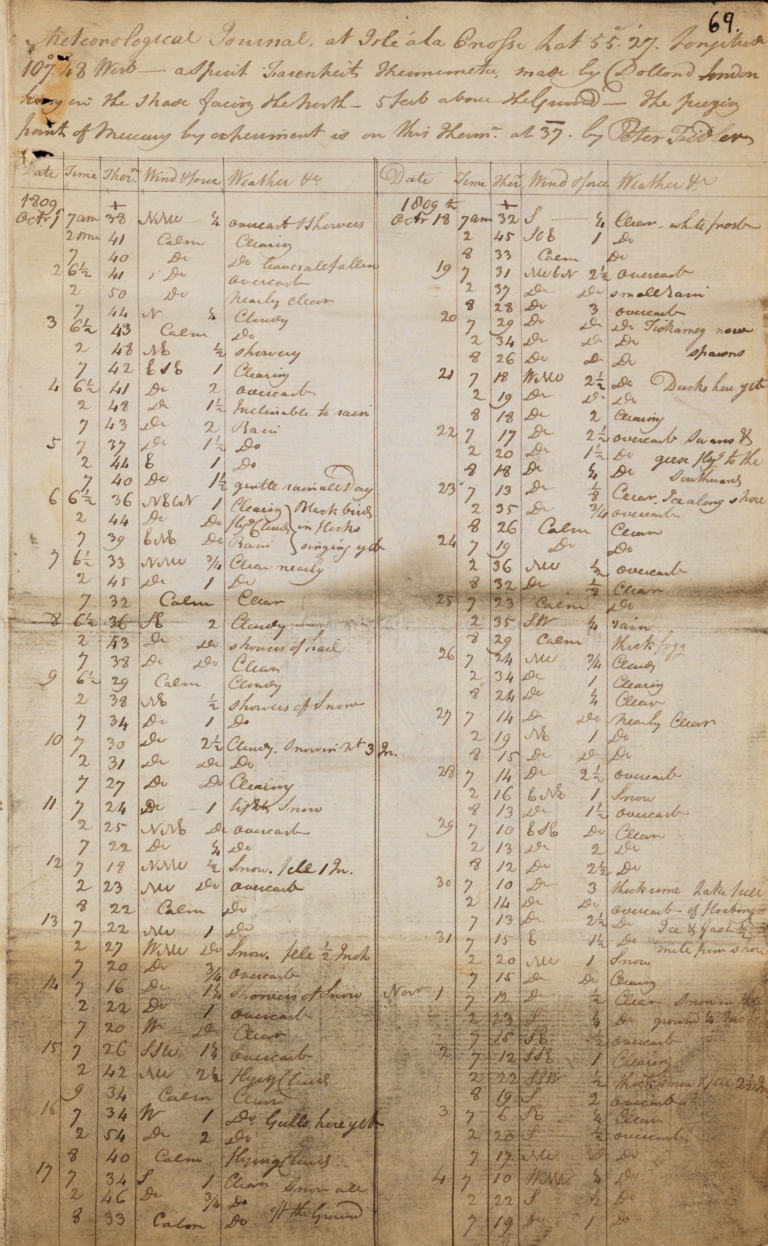 69.
Meteorological Journal, at Isle á la Crosse Lat 55°. 27'. Longitude
107°. 48 West — a Spirit Farenheits Thermometer, made by Dollond London
hung in the Shade facing the North — 5 feet above the Ground — the freezing
point of Mercury by experiment is on this Therm. at 37. by Peter Fidler
Date Time Ther. Wind & force Weather &c
1809 +
Octr 1 7am 38 NNW ¼ overcast & Showers
2 41 Calm Clearing
7 40 Do Do leaves all fallen
2 6½ 41 Do overcast
2 50 Do nearly clear
7 44 N ¼ Cloudy
3 6½ 43 Calm Do
2 48 NE ½ showery
7 42 ESE 1 Clearing
4 6½ 41 Do 2 overcast
2 48 Do 1½ Inclinable to rain
7 43 Do 2 Rain
5 7 37 Do 1½ Do
2 44 E 1 Do
7 40 Do 1½ gentle rain all Day
6 6½ 36 NEbN 1 Clearing Black birds
2 44 Do Do flyg Clouds in flocks
7 39 ENE Do Rain singing yet
7 6½ 33 NNW ¾ Clear nearly
2 45 Do 1 Do
7 32 Calm Clear
8 6½ 36 SE 2 Cloudy
2 43 Do Do showers of hail
7 38 Do Do Clear
9 6½ 29 Calm Cloudy
2 38 NE ½ showers of Snow
7 34 Do 1 Do
10 7 30 Do 2½ Cloudy. Snow in Nt 3 In.
2 31 Do Do Do
7 27 Do Do Clearing
11 7 24 Do 1 light Snow
2 25 NNE Do overcast
7 22 Do ¼ Do
12 7 18 NNW ½ Snow. fell 1 In.
2 23 NW Do overcast
8 22 Calm Do
13 7 22 NW 1 Do
2 27 WNW Do Snow. fell ½ Inch
7 20 Do ¾ overcast
14 7 16 Do 1¼ showers of Snow
2 22 Do 1 overcast
7 20 W Do Clear
15 7 26 SSW 1¼ overcast
2 42 NW 2½ flying Clouds
9 34 Calm Clear
16 7 34 W 1 Do Gulls here yet
2 54 Do 2 Do
8 40 Calm flying Clouds
17 7 34 S 1 Clear Snow all
2 46 Do ¾ Do off the Ground
8 33 Calm Do
Date Time Ther. Wind & force Weather &c
1809 +
Octr 18 7am 32 S ¼ Clear - white frost
2 45 SEE 1 Do
8 33 Calm Do
19 7 31 NWbN 2½ overcast
2 37 Do Do small rain
8 28 Do 3 overcast
20 7 29 Do Do Do Tickameg now
2 34 Do Do Do spawns
8 26 Do Do Do
21 7 18 WNW 2½ Do Ducks here yet
2 19 Do Do Do
8 18 Do 2 Clearing
22 7 17 Do 2½ overcast Swans &
2 20 Do 1½ Do geese flyg to the
8 18 Do ¼ Do Southward
23 7 13 Do ⅛ Clear. Ice along shore
2 35 Do ¾ overcast
8 26 Calm Clear
24 7 19 Do Do
2 36 NW ½ overcast
8 32 Do ½ Clear
25 7 23 Calm Do
2 35 SW ¼ rain
8 29 Calm thick fogg
26 7 24 NW ¾ Cloudy
2 34 Do 1 Clearing
8 24 Do ¼ Clear
27 7 14 Do Do nearly Clear
2 19 NE 1 Do
8 15 Do Do Do
28 7 14 Do 2½ overcast
2 16 ENE 1 Snow
8 13 Do 1½ overcast
29 7 10 ESE Do Clear
2 13 Do 2 Do
8 12 Do 2½ Do
30 7 10 Do 3 thick rime Lake full
2 14 Do Do overcast of floating
7 13 Do 2½ Do Ice & fast ½
31 7 15 E 1½ Do mile from shore
2 20 NW 1 Snow
7 15 Do Do Clearing
Novr 1 7 12 Do ½ Clear Snow on the
2 23 S ¼ Do ground ¼ Inch
7 15 SE ½ overcast
2 7 12 SSE 1 Clearing
2 22 SSW ½ thick snow fell 2½ In
8 19 S 2 overcast
3 7 6 SE ¼ Clear
2 20 S ½ overcast
7 17 NW Do Do
4 7 10 WNW ¼ Do
2 22 S ½ Do
7 19 Do 1 Do